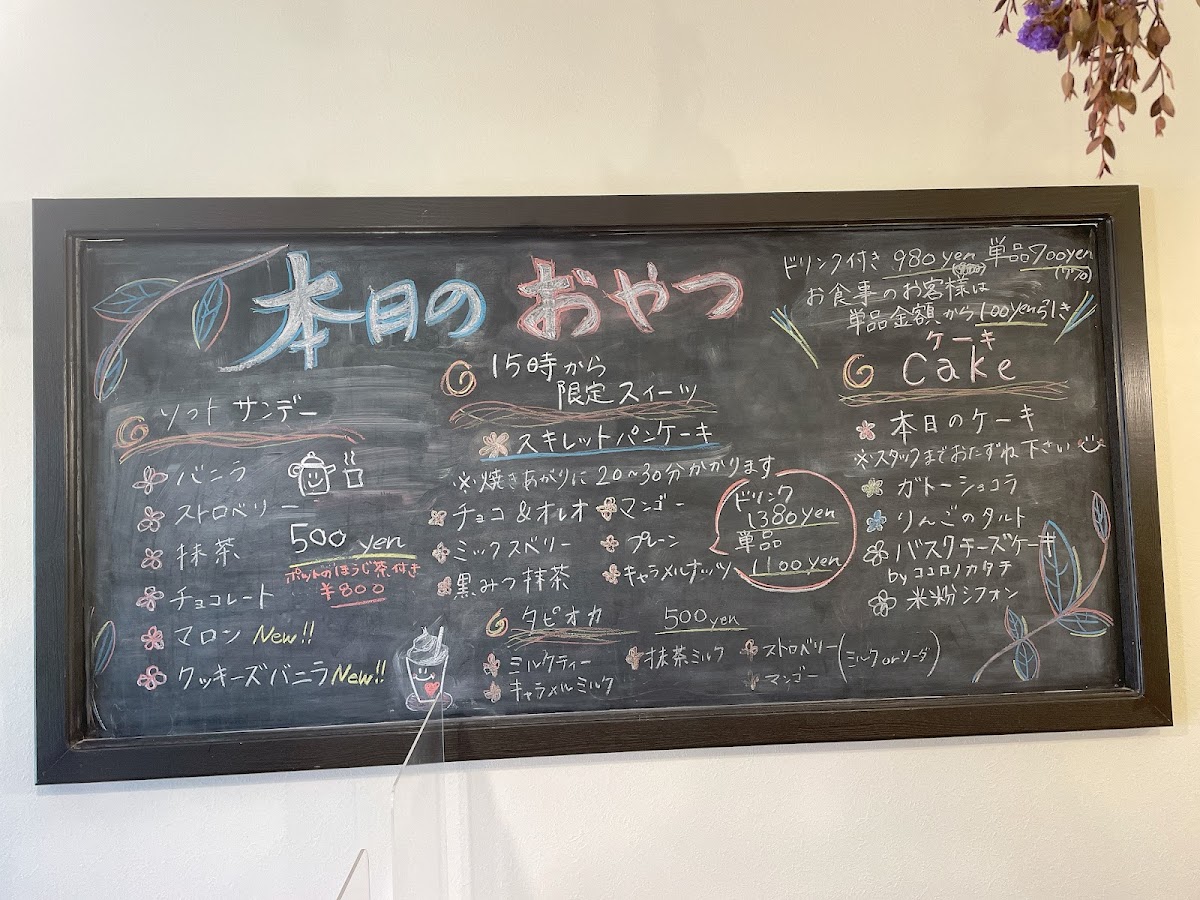 本日の おやつ
ソフト サンデー
バニラ
ストロベリー
抹茶
チョコレート
マロン New!!
クッキーズバニラ New!!
500 yen
ポットのほうじ茶付き
¥800
15時から
限定スイーツ
スキレットパンケーキ
※焼きあがりに 20〜30分かかります
チョコ&オレオ
ミックスベリー
黒みつ抹茶
マンゴー
プレーン
キャラメルナッツ
ドリンク
1380yen
単品
1100yen
タピオカ 500yen
ミルクティー
キャラメルミルク
抹茶ミルク
ストロベリー
マンゴー
(ミルク or ソーダ)
ドリンク付き 980yen 単品700yen
お食事のお客様は
単品金額から100yen引き
ケーキ
Cake
本日のケーキ
※スタッフまでおたずね下さい
ガトーショコラ
りんごのタルト
バスクチーズケーキ
by ココロノカタチ
米粉シフォン